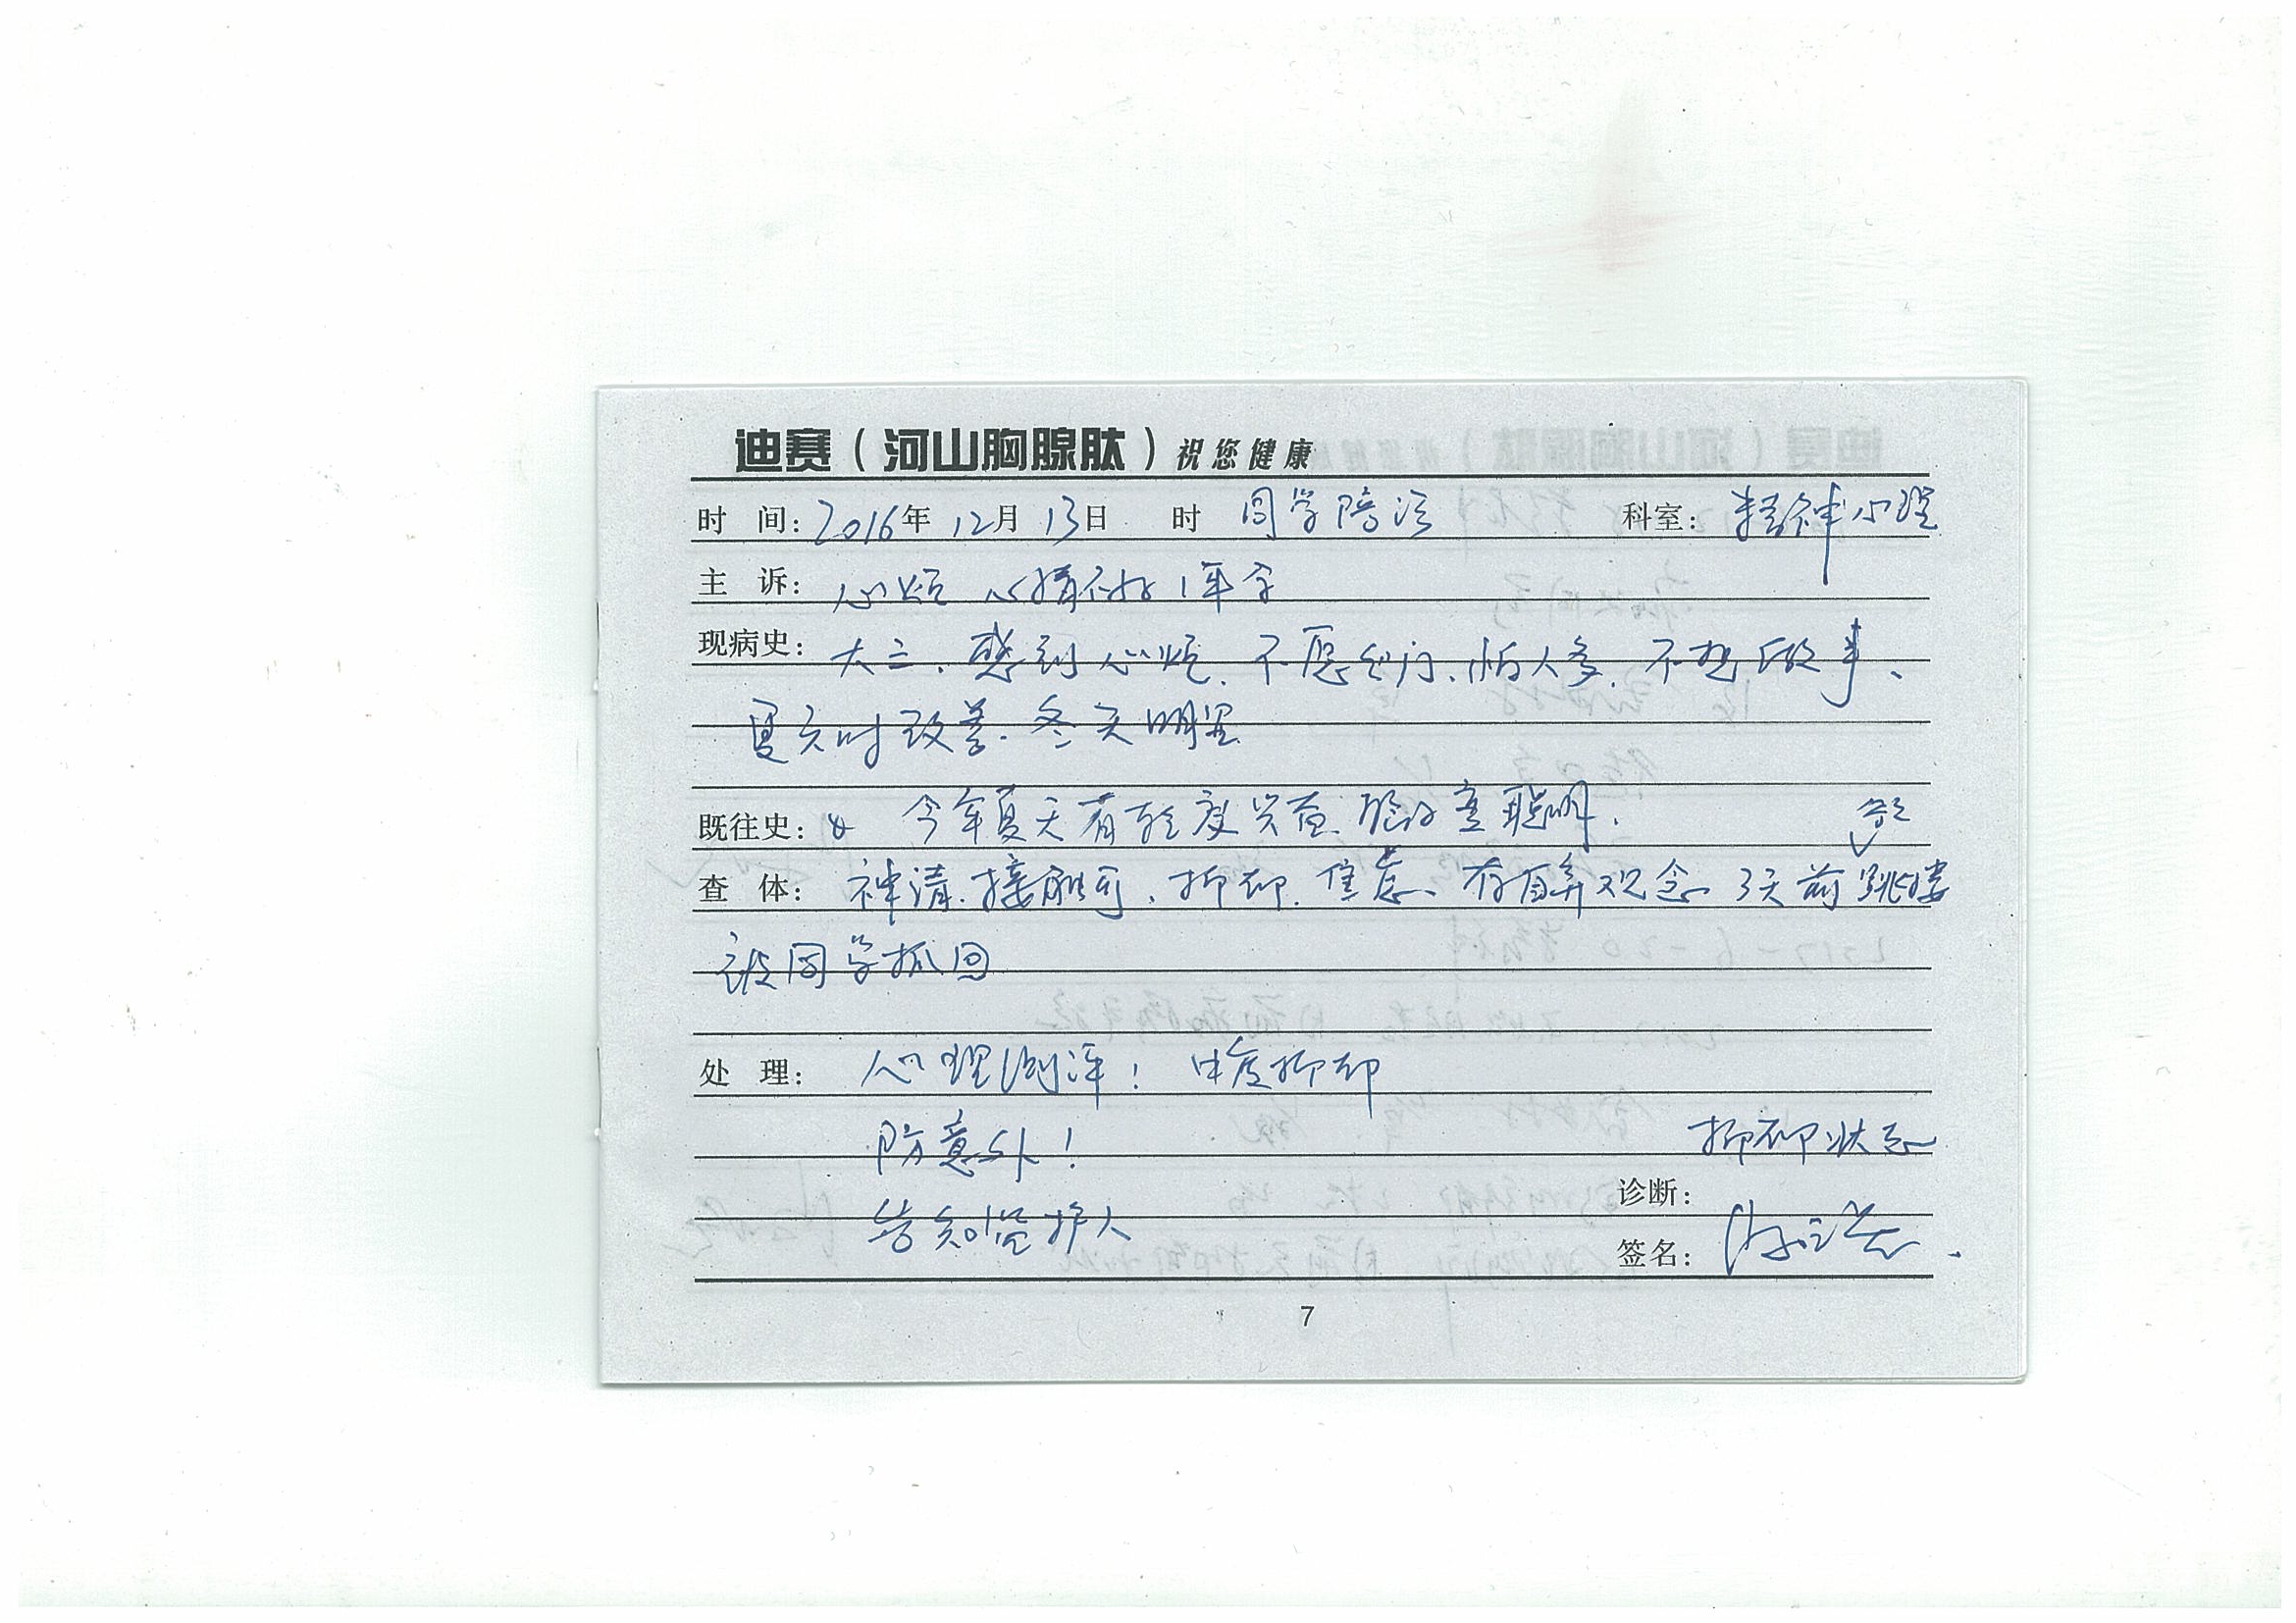 迪赛（河山胸腺肽）祝您健康
时 间：2016年 12月 13日 时 同学陪诊 科室：精神心理
主 诉：心烦 心情不好1年余
现病史：大三、感到心烦、不愿出门、怕人多、不想做事、
夏天时改善、冬天明显
既往史： 今年夏天有轻度兴奋、脑子变聪明、
欲
查 体：神清、接触可、抑郁、焦虑、有自弃观念 3天前跳楼
被同学抓回
处 理：心理测评：中度抑郁
防意外！
抑郁状态
告知监护人
诊断：
签名：
7